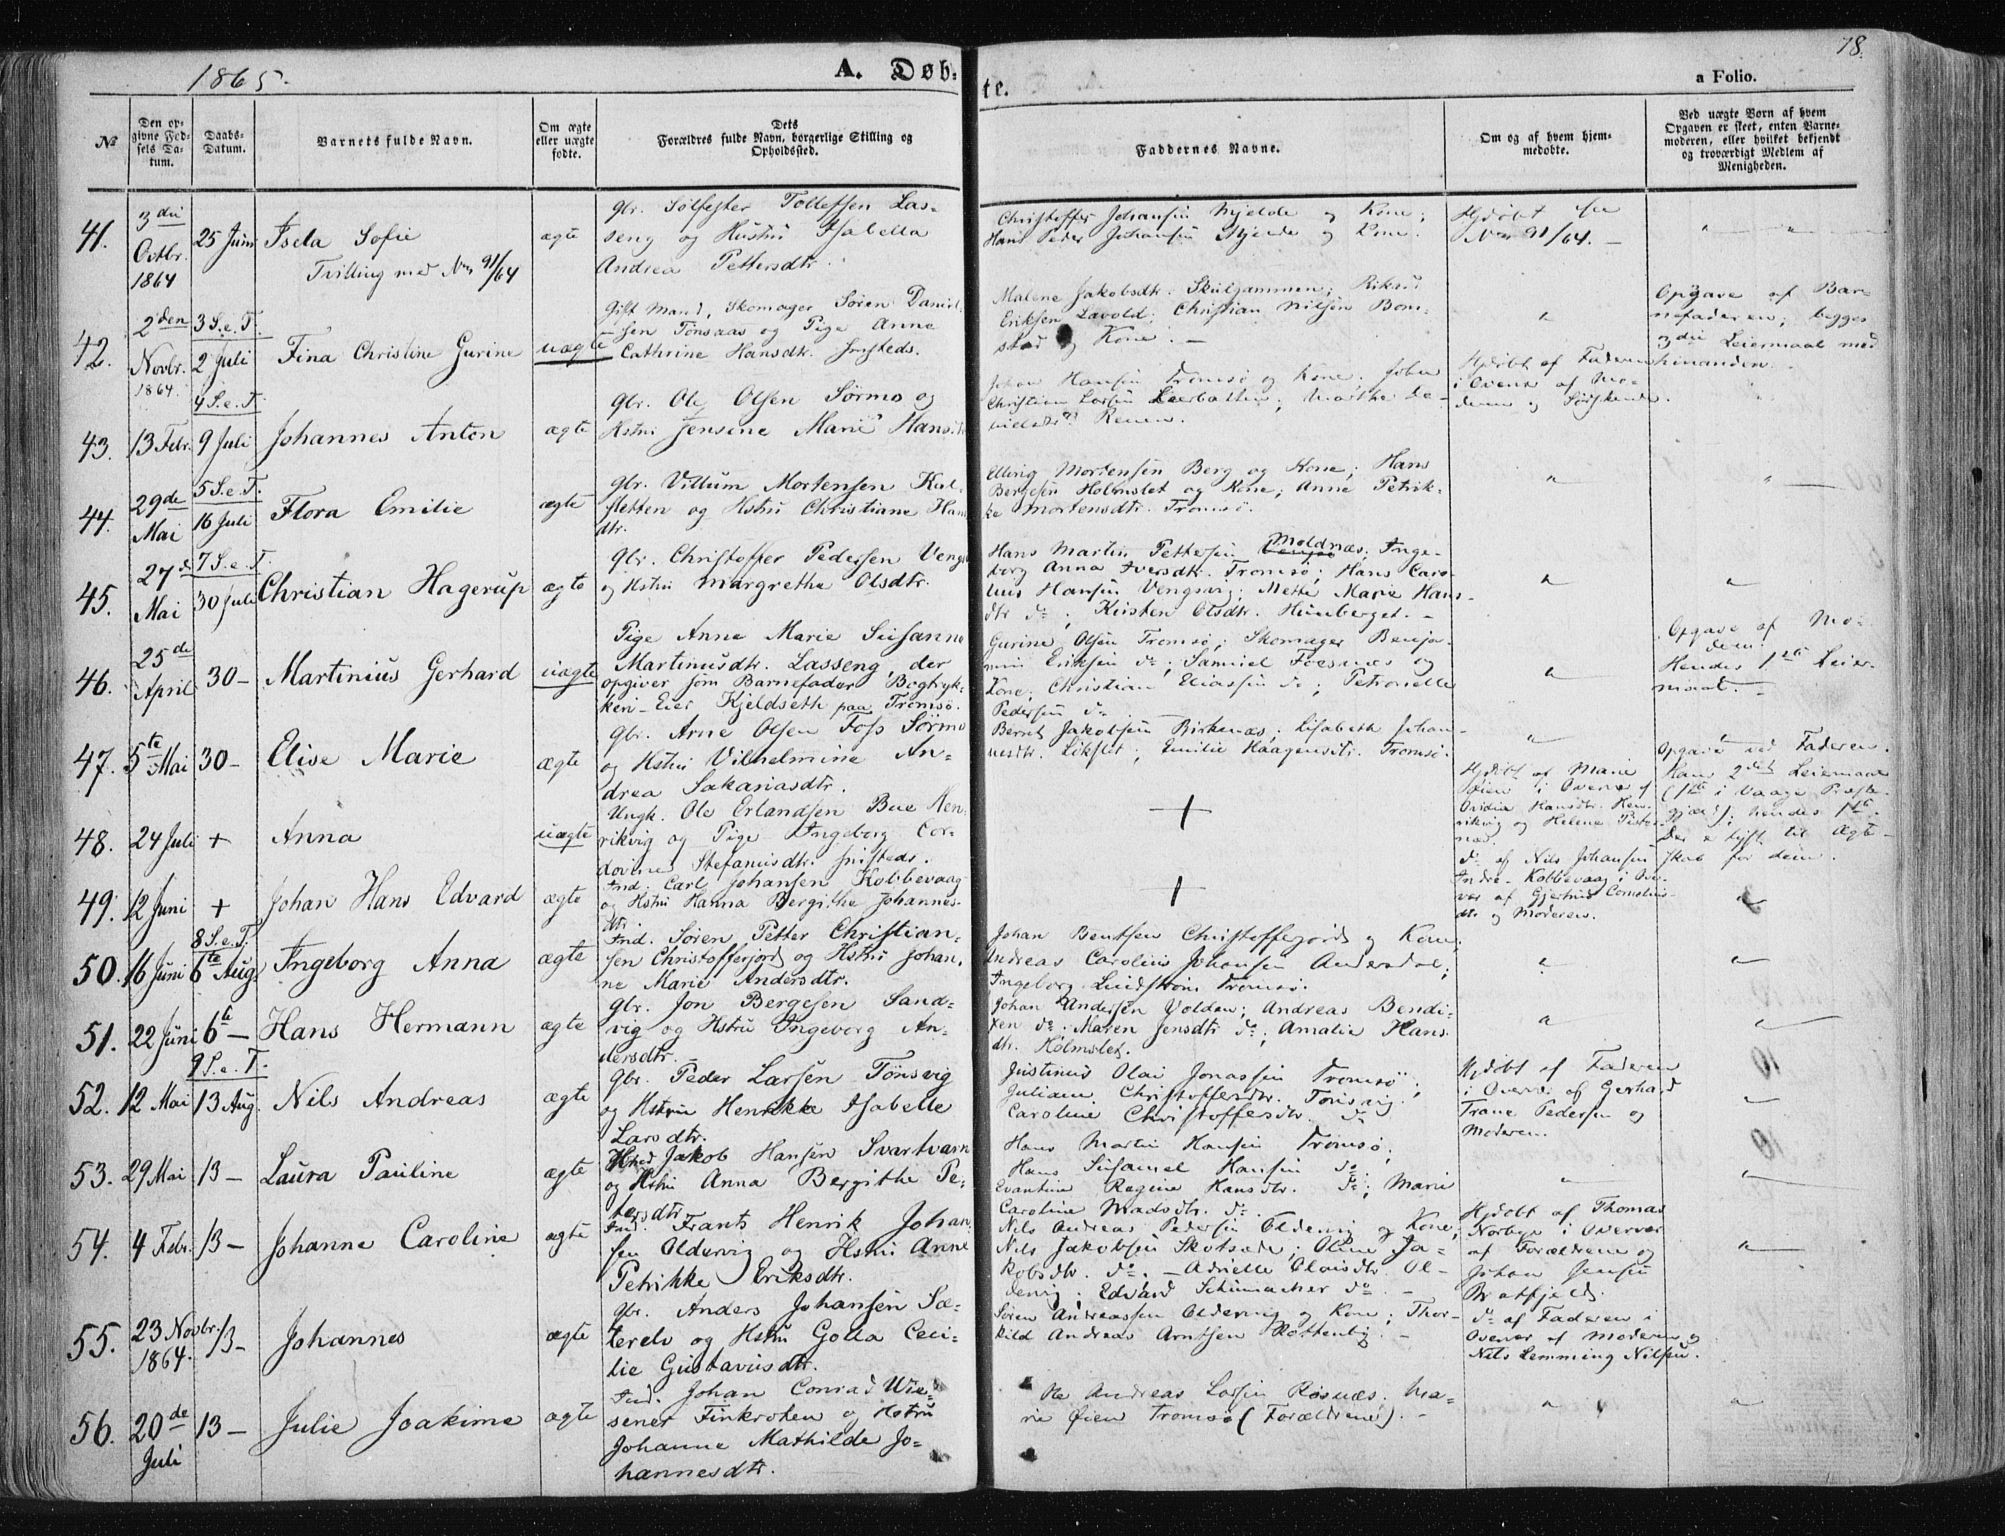 1865.
A. Døb-
te.
78.
a Folio.
No
Den op-
givne Fød-
sels Da-
tum.
Daabs-
Datum.
Barnets fulde Navn.
Om ægte
eller uægte
fødte.
Forældres fulde Navn, borgerlige Stilling og
Opholdssted.
Faddernes Navne.
Om og af hvem hjem-
medøbte.
Ved uægte Børn af hvem
Opgaven er skeet, enten Barne-
moderen, eller hvilket bekjendt
og troværdigt Medlem af
Menigheden.
41.
3die
Octbr.
1864
25 Juni
Isela Sofie
Tvilling med No 91/64
ægte
gbr. Sølfester Tollefsen Las-
seng og Hustru Isabella
Andrea Pettersdtr.
Christoffer Johansen Mjelde og Kone;
Hans Peder Johansen Mjelde og Kone.
Hjdøbt see
No 91/64.
42.
2den
Novbr.
1864.
3 S. e. T.
2 Juli
Fina Christine Gurine
uægte
Gift Mand, Skomager Søren Daniel-
sen Tønsaas og Pige Anne
Cathrine Hansdtr. sammesteds.
Malene Jakobsdtr. Skulgammen;
Eriksen Lavold; Christian Nilsen Bom-
stad og Kone.
Opgave af Bar-
nefaderen; begges
3die Leiermaal med
hinanden.
43.
13 Febr.
4 S. e. T.
9 Juli
Johannes Anton
ægte
gbr. Ole Olsen Sørmo og
Hstru Jensine Marie Hansdtr.
Johan Hansen Tromsø og Kone; John
Christian Larsen Leerbakken; Marthe Da-
nielsdtr. Renen.
Hjdøbt af Faderen
i Overv. af Mo-
deren og Søskende.
44.
29de
Mai
5 S. e. T.
16 Juli
Flora Emilie
ægte
gbr. Villum Mortensen Kal-
sletten og Hstru Christiane Hans
dtr.
Ellerig Mortensen Berg og Kone; Hans
Bergesen Holmslet og Kone; Anne Petrik-
ke Mortensdtr. Tromsø.
45.
27de
Mai
7 S. e. T.
30 Juli
Christian Hagerup
ægte
gbr. Christoffer Pedersen Vengs
og Hstru Margrethe Olsdtr.
Hans Martin Pettersen Moldnæs; Inge-
borg Anna Iversdtr. Tromsø; Hans Caro-
lius Hansen Vengsøy; Mette Marie Hans-
dtr do; Kirsten Olsdtr. Humberget.
46.
25de
April
30 -
Martinius Gerhard
uægte
Pige Anne Marie Susanna
Martinusdtr. Lasseng, der
opgiver som Barnefader Bogtryk-
keri-Eier Kjeldseth paa Tromsø.
Gurine Olsen Tromsø; Skomager Benja-
min Eriksen do; Samuel Foesnæs og
Kone; Christian Eliassen do; Petronelle
Pedersen do
Opgave af Mo-
deren.
Hendes 1ste Leier-
maal.
47.
5te Mai
30 -
Elise Marie
ægte
gbr. Arne Olsen Foss Sørmo
og Hstru Vilhelmine An-
drea Sakariasdtr.
Bernt Jakobsen Birkenæs; Elisabeth Johan-
nesdtr. Løkslet; Emilie Haagensdtr. Tromsø.
48.
24 Juli
+
Anna
uægte
Ungk. Ole Erlandsen Bue Hen-
rikvig og Pige Ingeborg Cor-
dovine Stefanusdtr. sammesteds.
+
Hjdøbt af Marie
Øien i Overv. af
Ovidia Hansdtr. Hen-
rikvig og Helene Peters-
næs.
Opgave ved Faderen.
Hans 2det Leiermaal
(1ste i Vaage Præste-
gjæld); hendes 1ste.
Der er lyst til Ægte-
skab for dem.
49.
12 Juni
+
Johan Hans Edvard
ægte
Ind. Carl Johansen Kobbevaag
og Hstru Hanna Bergithe Johannes-
dtr.
+
do af Nils Johansen
Indre-Kobbevaag i Over-
vær af Gjertrud Cornelius-
dtr og Moderen.
50.
16 Juni
8 S. e. T.
6te Aug.
Ingeborg Anna
ægte
Ind. Søren Petter Christian-
sen Christoffersfjord og Hstru Johan-
ne Marie Andersdtr.
Johan Bentsen Christoffesjord og Kone;
Andreas Carolius Johansen Andersdal;
Ingeborg Lindstrøm Tromsø.
51.
22 Juni
6te -
Hans Hermann
ægte
gbr. Jon Bergesen Sand-
vig og Hstru Ingeborg An-
dersdtr.
Johan Andersen Volden; Andreas Bendi-
xen do. Maren Jensdtr do; Amalie Hans-
dtr. Holmslet.
52.
12 Mai
9 S. e. T.
13 Aug.
Nils Andreas
ægte
gbr. Peder Larsen Tønsvig
og Hstru Henrikka Isabelle
Larsdtr.
Justinus Olai Jonassen Tromsø;
Juliane Christoffersdtr. Tønsvig.
Caroline Christoffersdtr. do
Hjdøbt af Faderen
i Overv. af Gerhard
Trane Pedersen og
Moderen.
53.
29 Mai
13 -
Laura Pauline
ægte
Jakob Hansen Svartvann
og Hstru Anna Bergithe Pe-
tersdtr.
Hans Martin Hansen Tromsø;
Hans Susamel Hansen do
Evantine Regine Hansdtr. do; Marie
Caroline Madsdtr. do.
54.
4 Febr.
13 -
Johanne Caroline
ægte
Ind. Frants Henrik Johan-
sen Oldervig og Hstru Anne
Petrikke Eriksdtr.
Nils Andreas Pedersen Oldervig og Kone;
Nils Jakobsen Skotsæter; Oline Ja-
kobsdtr. do. - Adrielle Olaisdtr Ol-
dervig; Edvard Schumacher do
Hjdøbt af Thomas
Norbye i Overvær
af Forældrene og
Johan Jensen
Bratfjeld.
55.
23 Novbr.
1864.
13 -
Johannes
ægte
gbr. Anders Johansen Sæ-
terelv og Hstru Golla Ceci-
lie Gustavusdtr.
Søren Andreassen Oldervig og Kone; Thor-
kild Andreas Arntsen Rottenvig.
do af Faderen i
Overvær af Moderen og
Nils Lemming Nilsen.
56.
20de
Juli
13 -
Julie Joakime
ægte
Ind. Johan Conrad Wie-
sener Finkroken og Hstru
Johanne Mathilde Jo-
hannesdtr.
Ole Andreas Larsen Røsnæs; Ma-
rie Øien Tromsø (Forældrene).